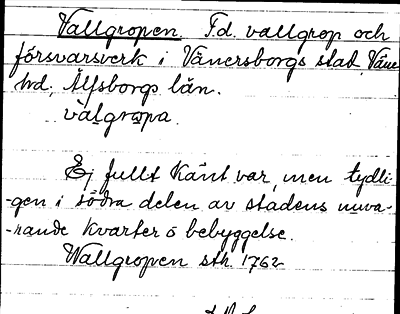 Vallgropen. F.d. vallgrop och
försvarsverk i Vänersborgs stad, Väne
hd, Älfsborgs län.
vàlgrωpa.
Ej fullt känt var, men tydli-
-gen i södra delen av stadens nuva-
-rande kvarter o bebyggelse.
Wallgropen stk. 1762